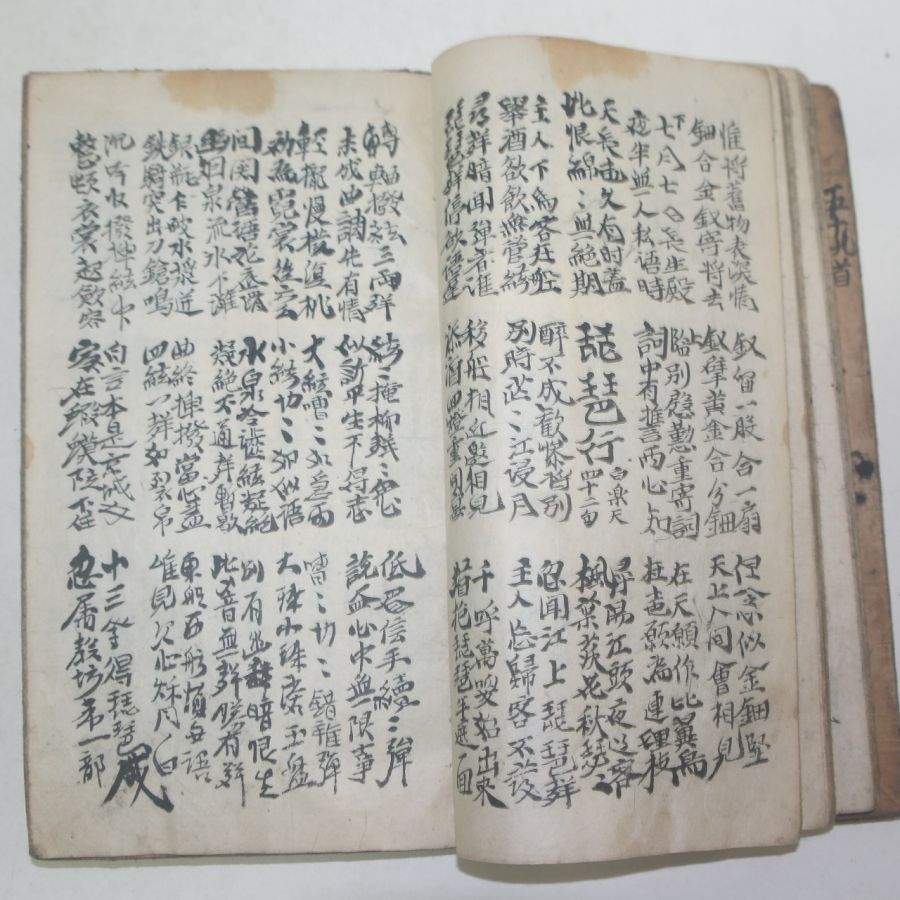 惟將舊物表深情
鈿合金釵寄將去
釵留一股合一扇
釵擘黃金合分鈿
但令心似金鈿堅
天上人間會相見
下 七月七日長生殿
夜半無人私語時
上 臨別慇懃重寄詞
詞中有誓兩心知
在天願作比翼鳥
在地願為連理枝
天長地久有時盡
此恨綿〻無絶期
琵琶行 白樂天 四十二句
潯陽江頭夜送客
楓葉荻花秋瑟〻
主人下馬客在船
舉酒欲飲無管絃
醉不成歡慘將別
別時茫〻江浸月
忽聞江上琵琶聲
主人忘歸客不發
尋聲暗問彈者誰
琵琶聲停欲語遲
移船相近邀相見
添酒回燈重開宴
千呼萬喚始出來
猶抱琵琶半遮面
轉軸撥絃三兩聲
未成曲調先有情
絃〻掩抑聲〻思
似訴平生不得志
低眉信手續〻彈
說盡心中無限事
輕攏慢撚復挑
初為霓裳後六幺
大絃嘈〻如急雨
小絃切〻如私語
嘈〻切〻錯雜彈
大珠小珠落玉盤
間関鶯語花底滑
幽咽泉流水下灘
水泉冷澁絃凝絶
凝絶不通聲暫歇
別有幽愁暗恨生
此音無聲勝有聲
銀瓶乍破水漿迸
鉄騎突出刀鎗鳴
曲終抽撥當心畫
四絃一聲如裂帛
東船西舫悄無語
唯見江心秋月白
沉吟收撥揷絃中
整頓衣裳起斂容
自言本是京城女
家在蝦蟆陵下住
十三學得琵琶成
名屬敎坊第一部